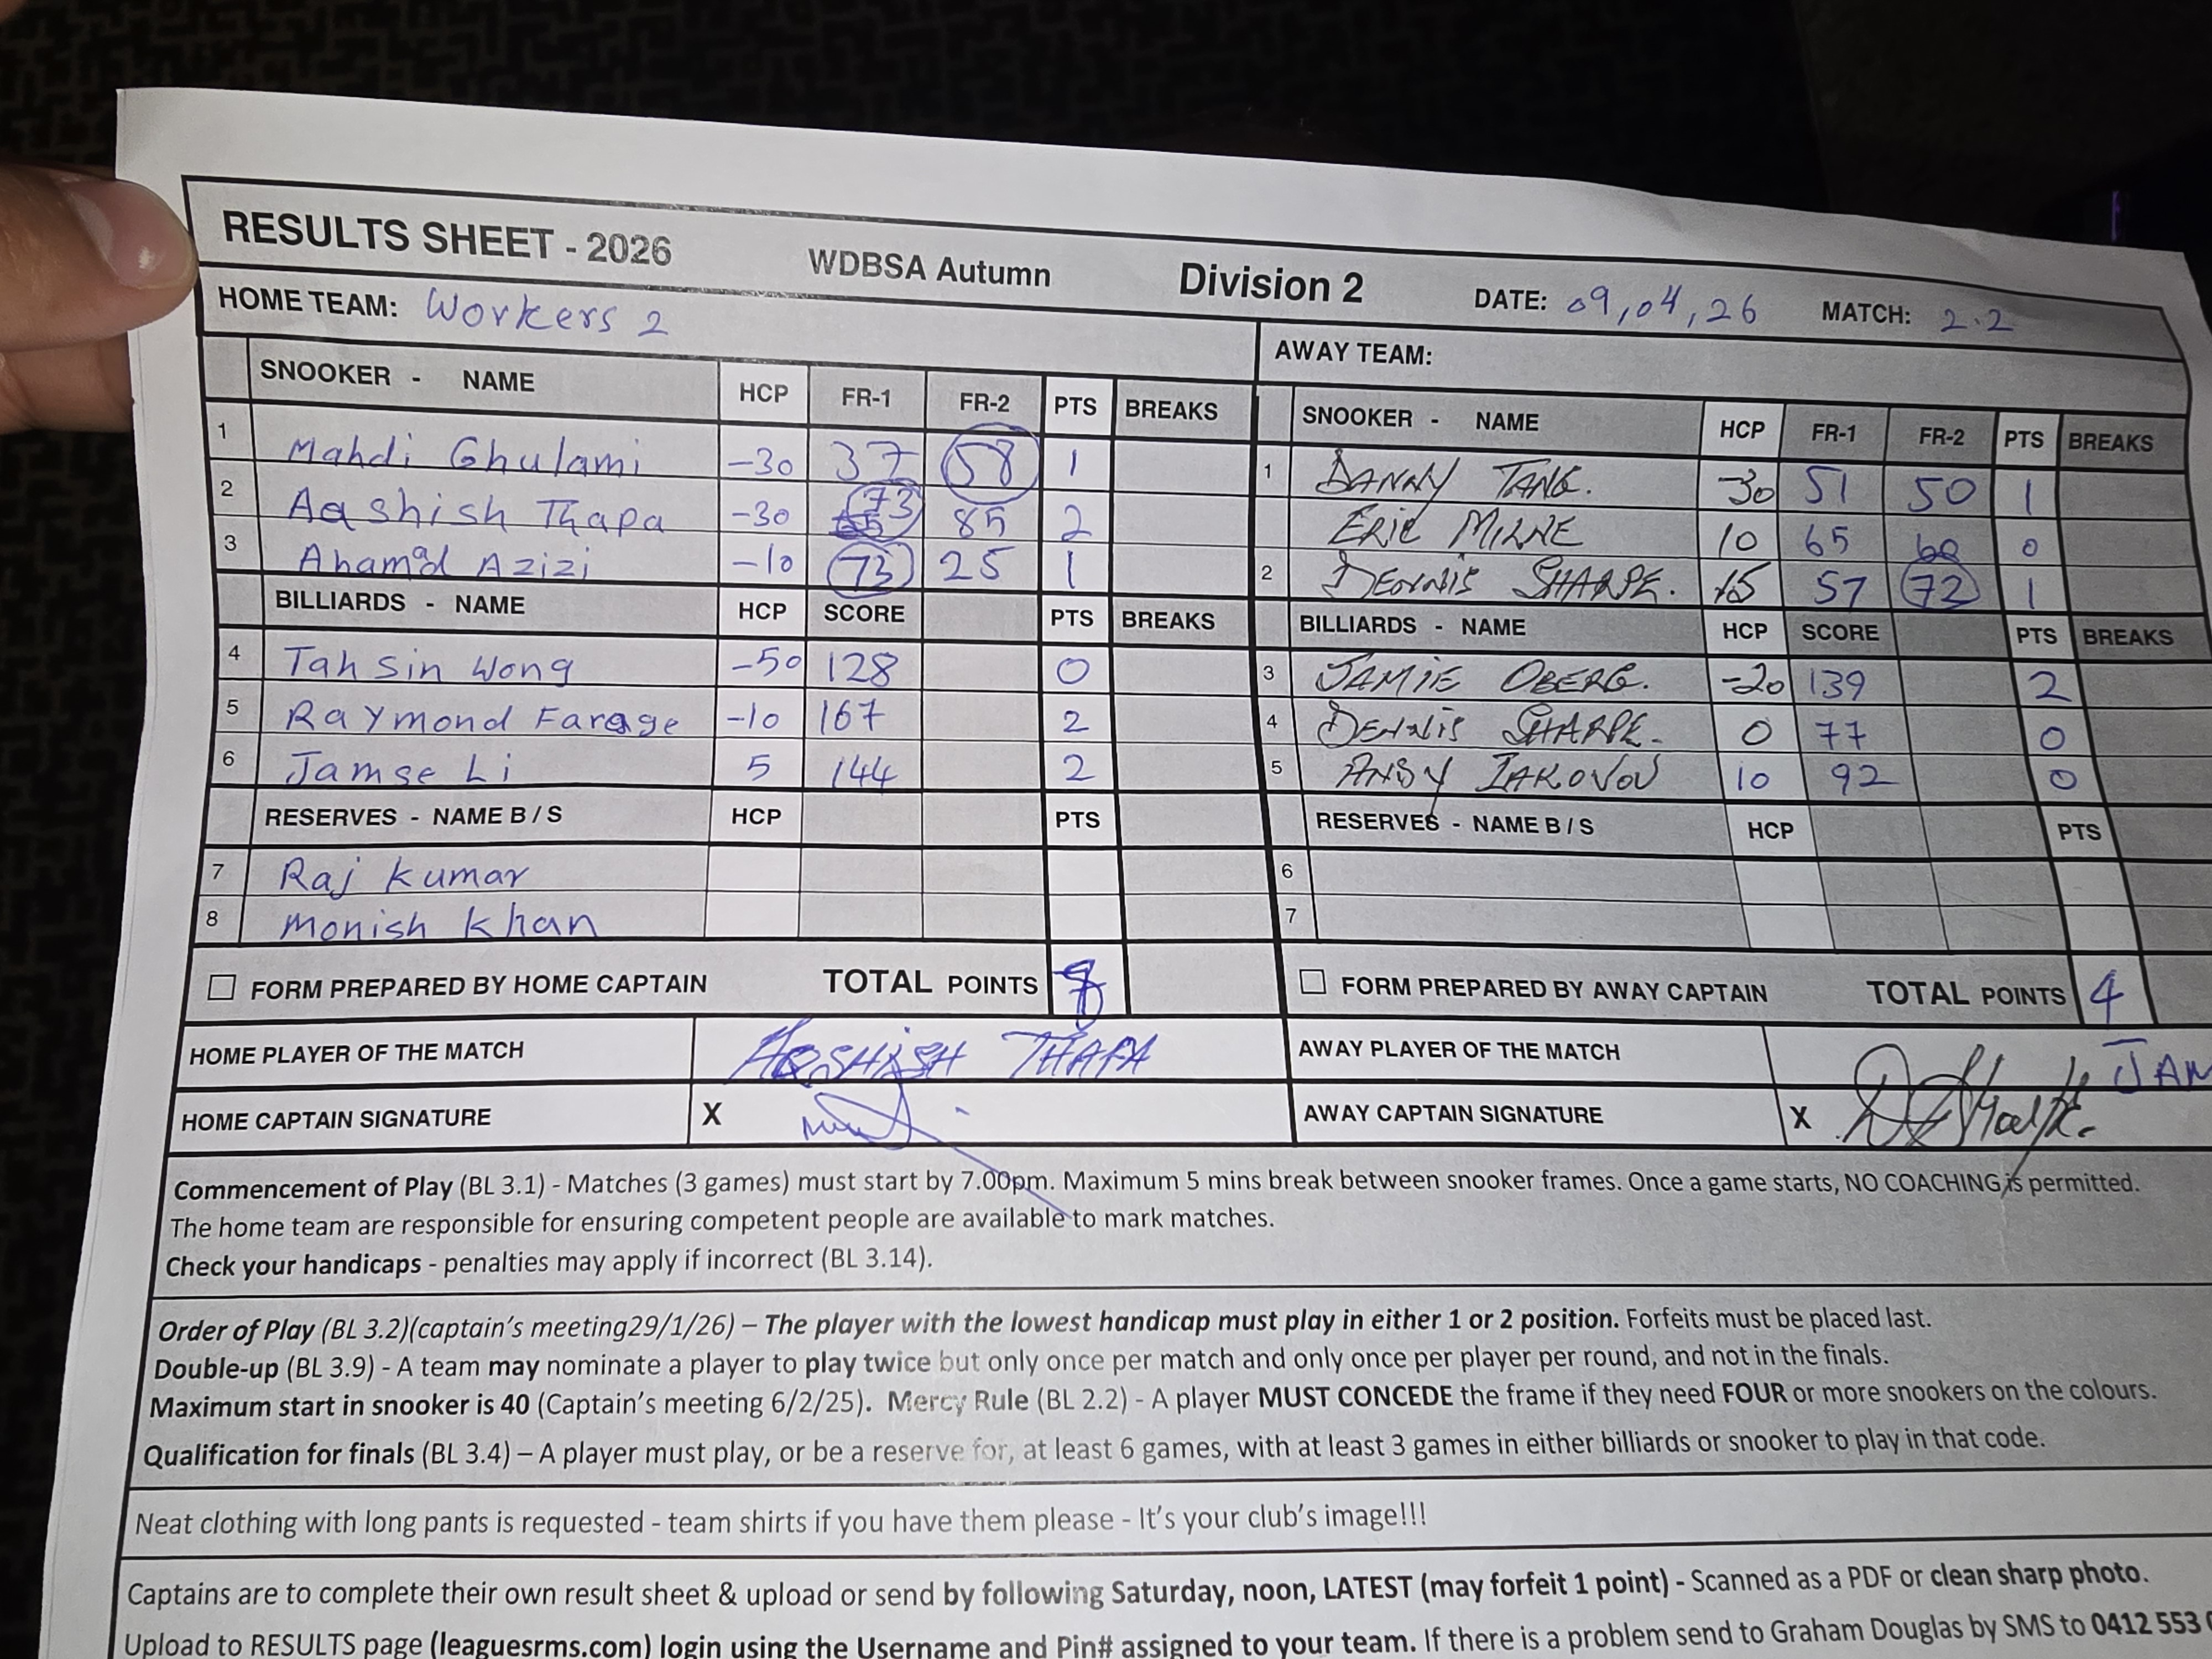 RESULTS SHEET - 2026 WDBSA Autumn Division 2 DATE: 09,04,26 MATCH: 2.2
HOME TEAM: Workers 2
AWAY TEAM:
SNOOKER - NAME HCP FR-1 FR-2 PTS BREAKS
1 Mahdi Ghulami -30 37 58 1
2 Aashish Thapa -30 73 85 2
3 Ahamad Azizi -10 73 25 1
BILLIARDS - NAME HCP SCORE PTS BREAKS
4 Tahsin Wong -50 128 0
5 Raymond Farage -10 167 2
6 Jamse Li 5 144 2
RESERVES - NAME B / S HCP PTS
7 Raj Kumar
8 Monish Khan
FORM PREPARED BY HOME CAPTAIN TOTAL POINTS
HOME PLAYER OF THE MATCH AASHISH THAPA
HOME CAPTAIN SIGNATURE X
SNOOKER - NAME HCP FR-1 FR-2 PTS BREAKS
1 DANNY TANG. -30 51 50 1
ERIC MILNE 10 65 0
2 DENNIS SHARPE. 15 57 72 1
BILLIARDS - NAME HCP SCORE PTS BREAKS
3 JAMIE OBERG. -20 139 2
4 DENNIS SHARPE. 0 77 0
5 ANDY IAKOVOU 10 92 0
RESERVES - NAME B / S HCP PTS
6
7
FORM PREPARED BY AWAY CAPTAIN TOTAL POINTS 4
AWAY PLAYER OF THE MATCH JAM
AWAY CAPTAIN SIGNATURE X
Commencement of Play (BL 3.1) - Matches (3 games) must start by 7.00pm. Maximum 5 mins break between snooker frames. Once a game starts, NO COACHING is permitted.
The home team are responsible for ensuring competent people are available to mark matches.
Check your handicaps - penalties may apply if incorrect (BL 3.14).
Order of Play (BL 3.2)(captain's meeting29/1/26) – The player with the lowest handicap must play in either 1 or 2 position. Forfeits must be placed last.
Double-up (BL 3.9) - A team may nominate a player to play twice but only once per match and only once per player per round, and not in the finals.
Maximum start in snooker is 40 (Captain's meeting 6/2/25). Mercy Rule (BL 2.2) - A player MUST CONCEDE the frame if they need FOUR or more snookers on the colours.
Qualification for finals (BL 3.4) – A player must play, or be a reserve for, at least 6 games, with at least 3 games in either billiards or snooker to play in that code.
Neat clothing with long pants is requested - team shirts if you have them please - It's your club's image!!!
Captains are to complete their own result sheet & upload or send by following Saturday, noon, LATEST (may forfeit 1 point) - Scanned as a PDF or clean sharp photo.
Upload to RESULTS page (leaguesrms.com) login using the Username and Pin# assigned to your team. If there is a problem send to Graham Douglas by SMS to 0412 553